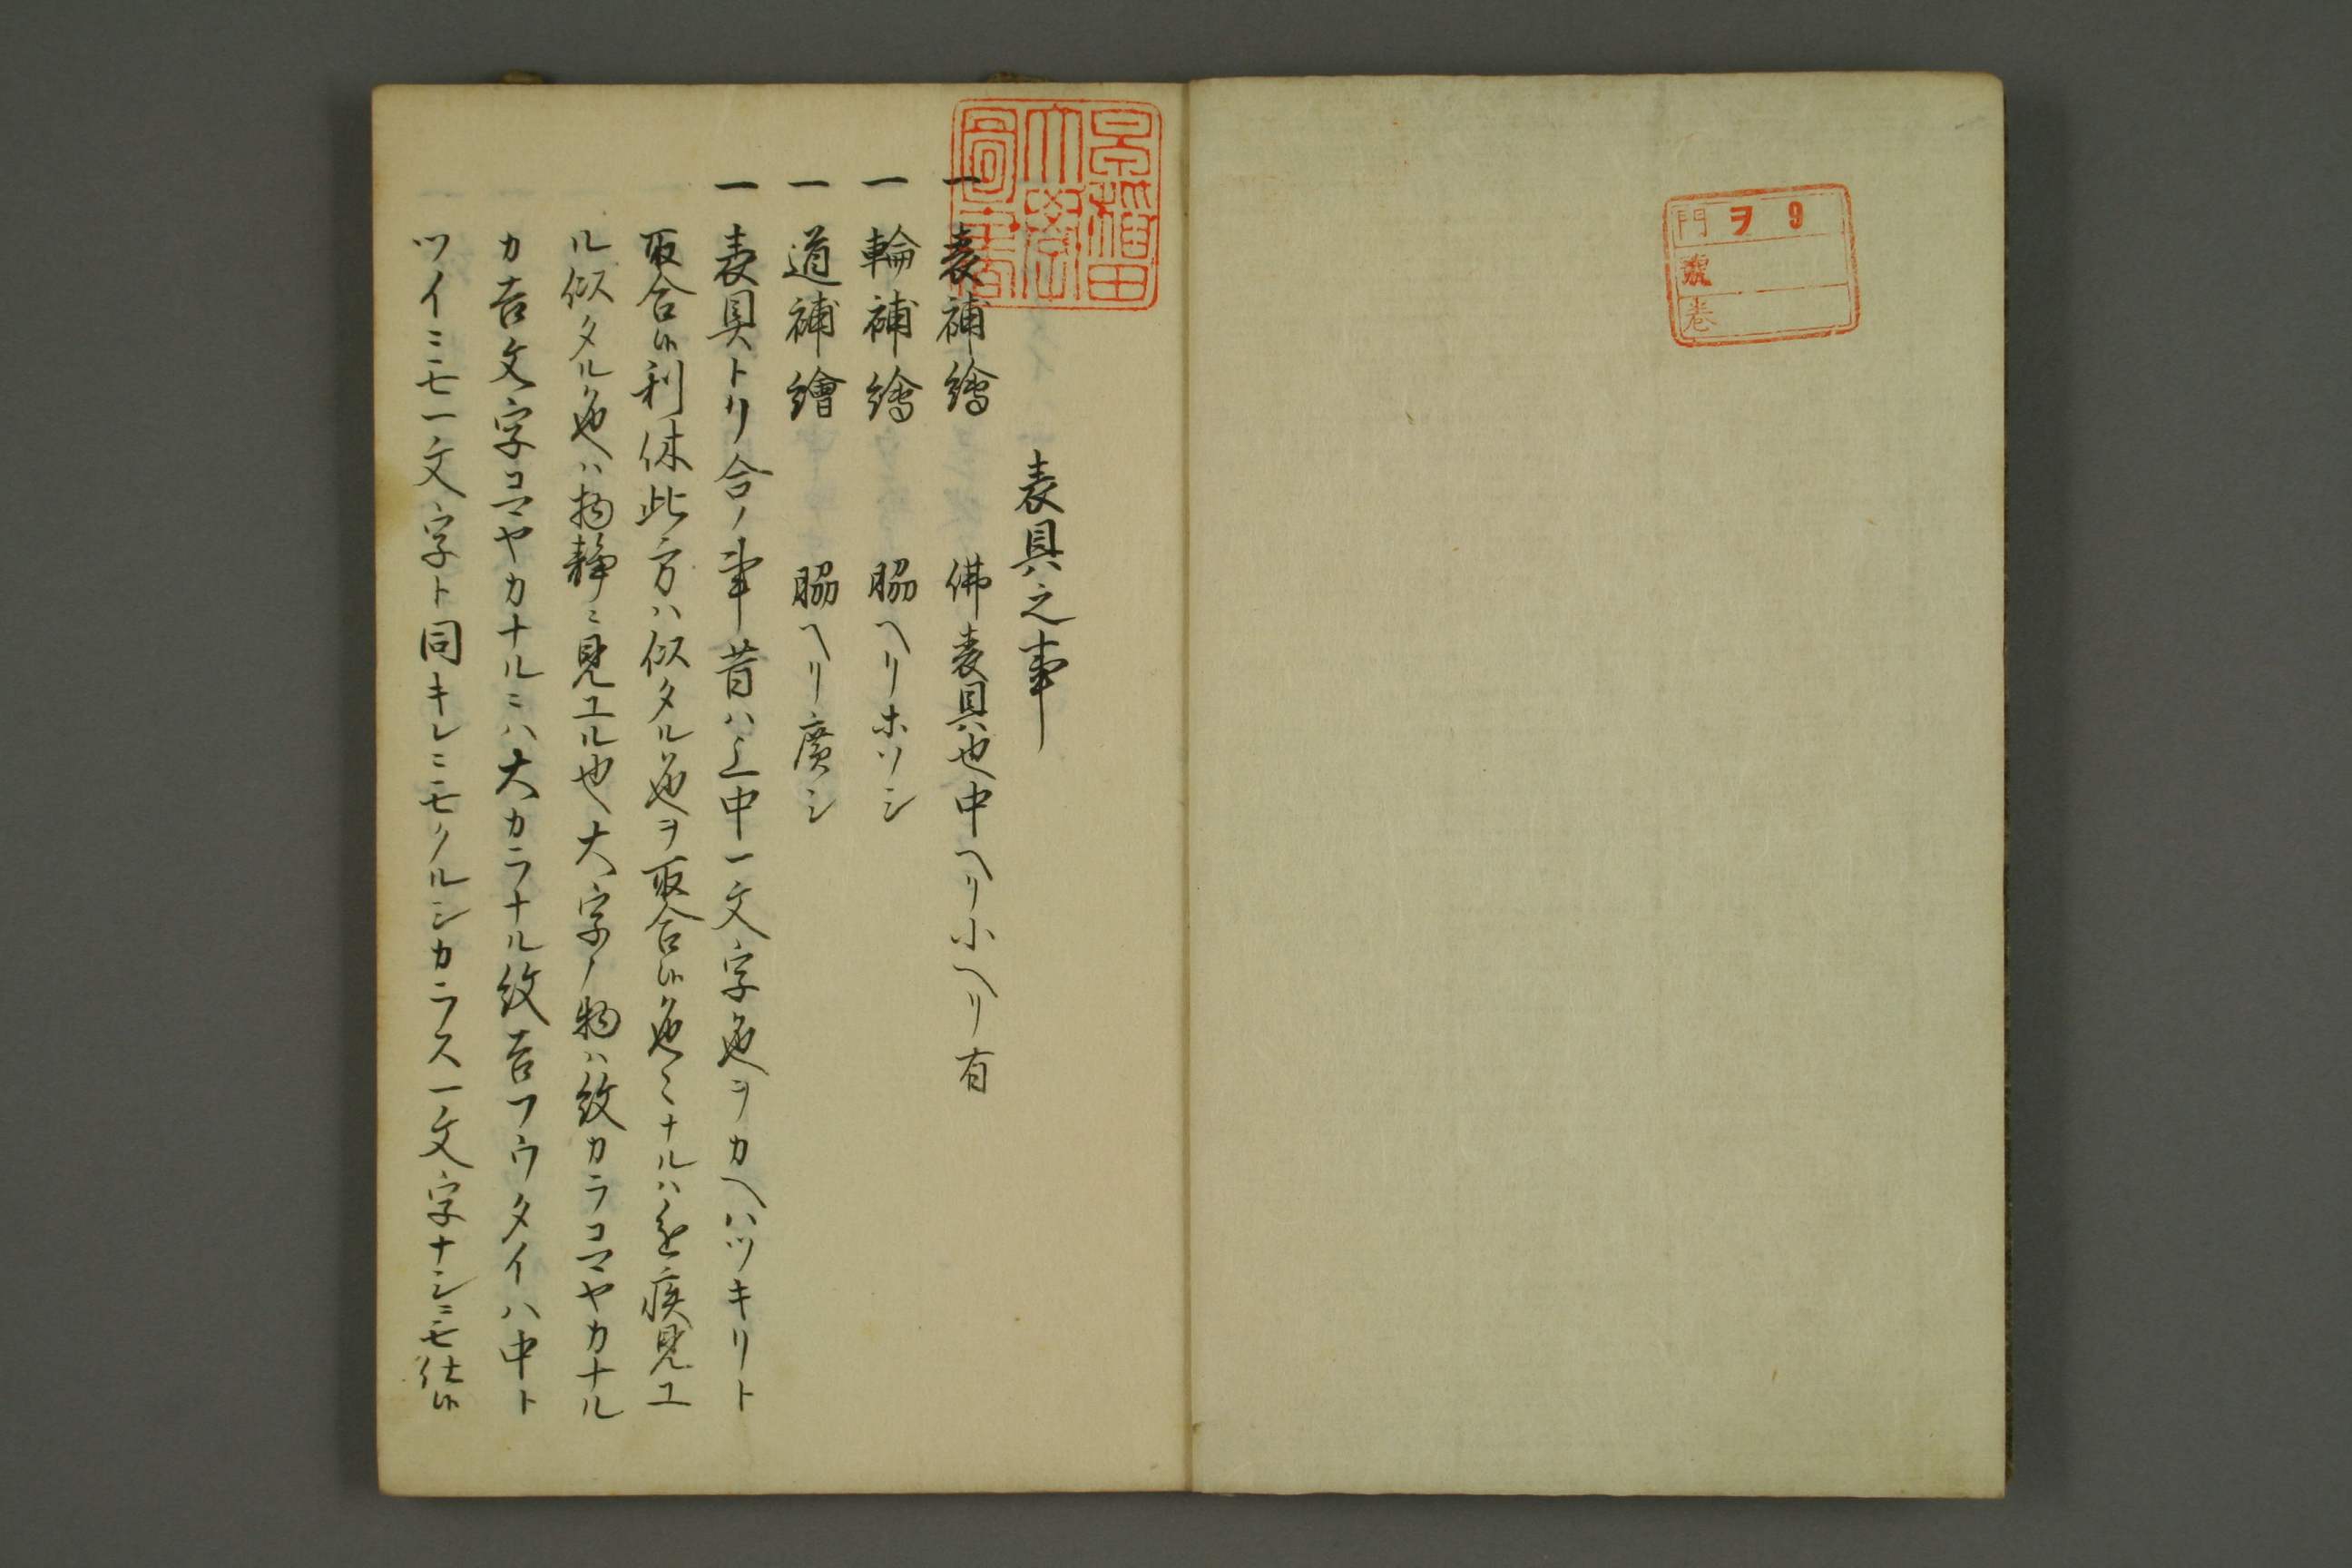 門ヲ9
號
卷
早稲田
大學
圖書
表具之事
一表補繪　佛表具也中ヘリ小ヘリ有
一輪補繪　脇ヘリホソシ
一道補繪　脇ヘリ廣シ
一表具トリ合ノ事昔ハ上中一文字色ヲカヘハツキリト
取合候利休此方ハ似タル色ヲ取合候色〻ナルハ 見エ
ル似タル色ハ物静ニ見エル也大字ノ物ハ紋カラコマヤカナル
カ吉文字コマヤカナルニハ大カラナル紋吉フウタイハ中ト
ツイニモ一文字ト同キレニモクルシカラス一文字ナシニモ仕候